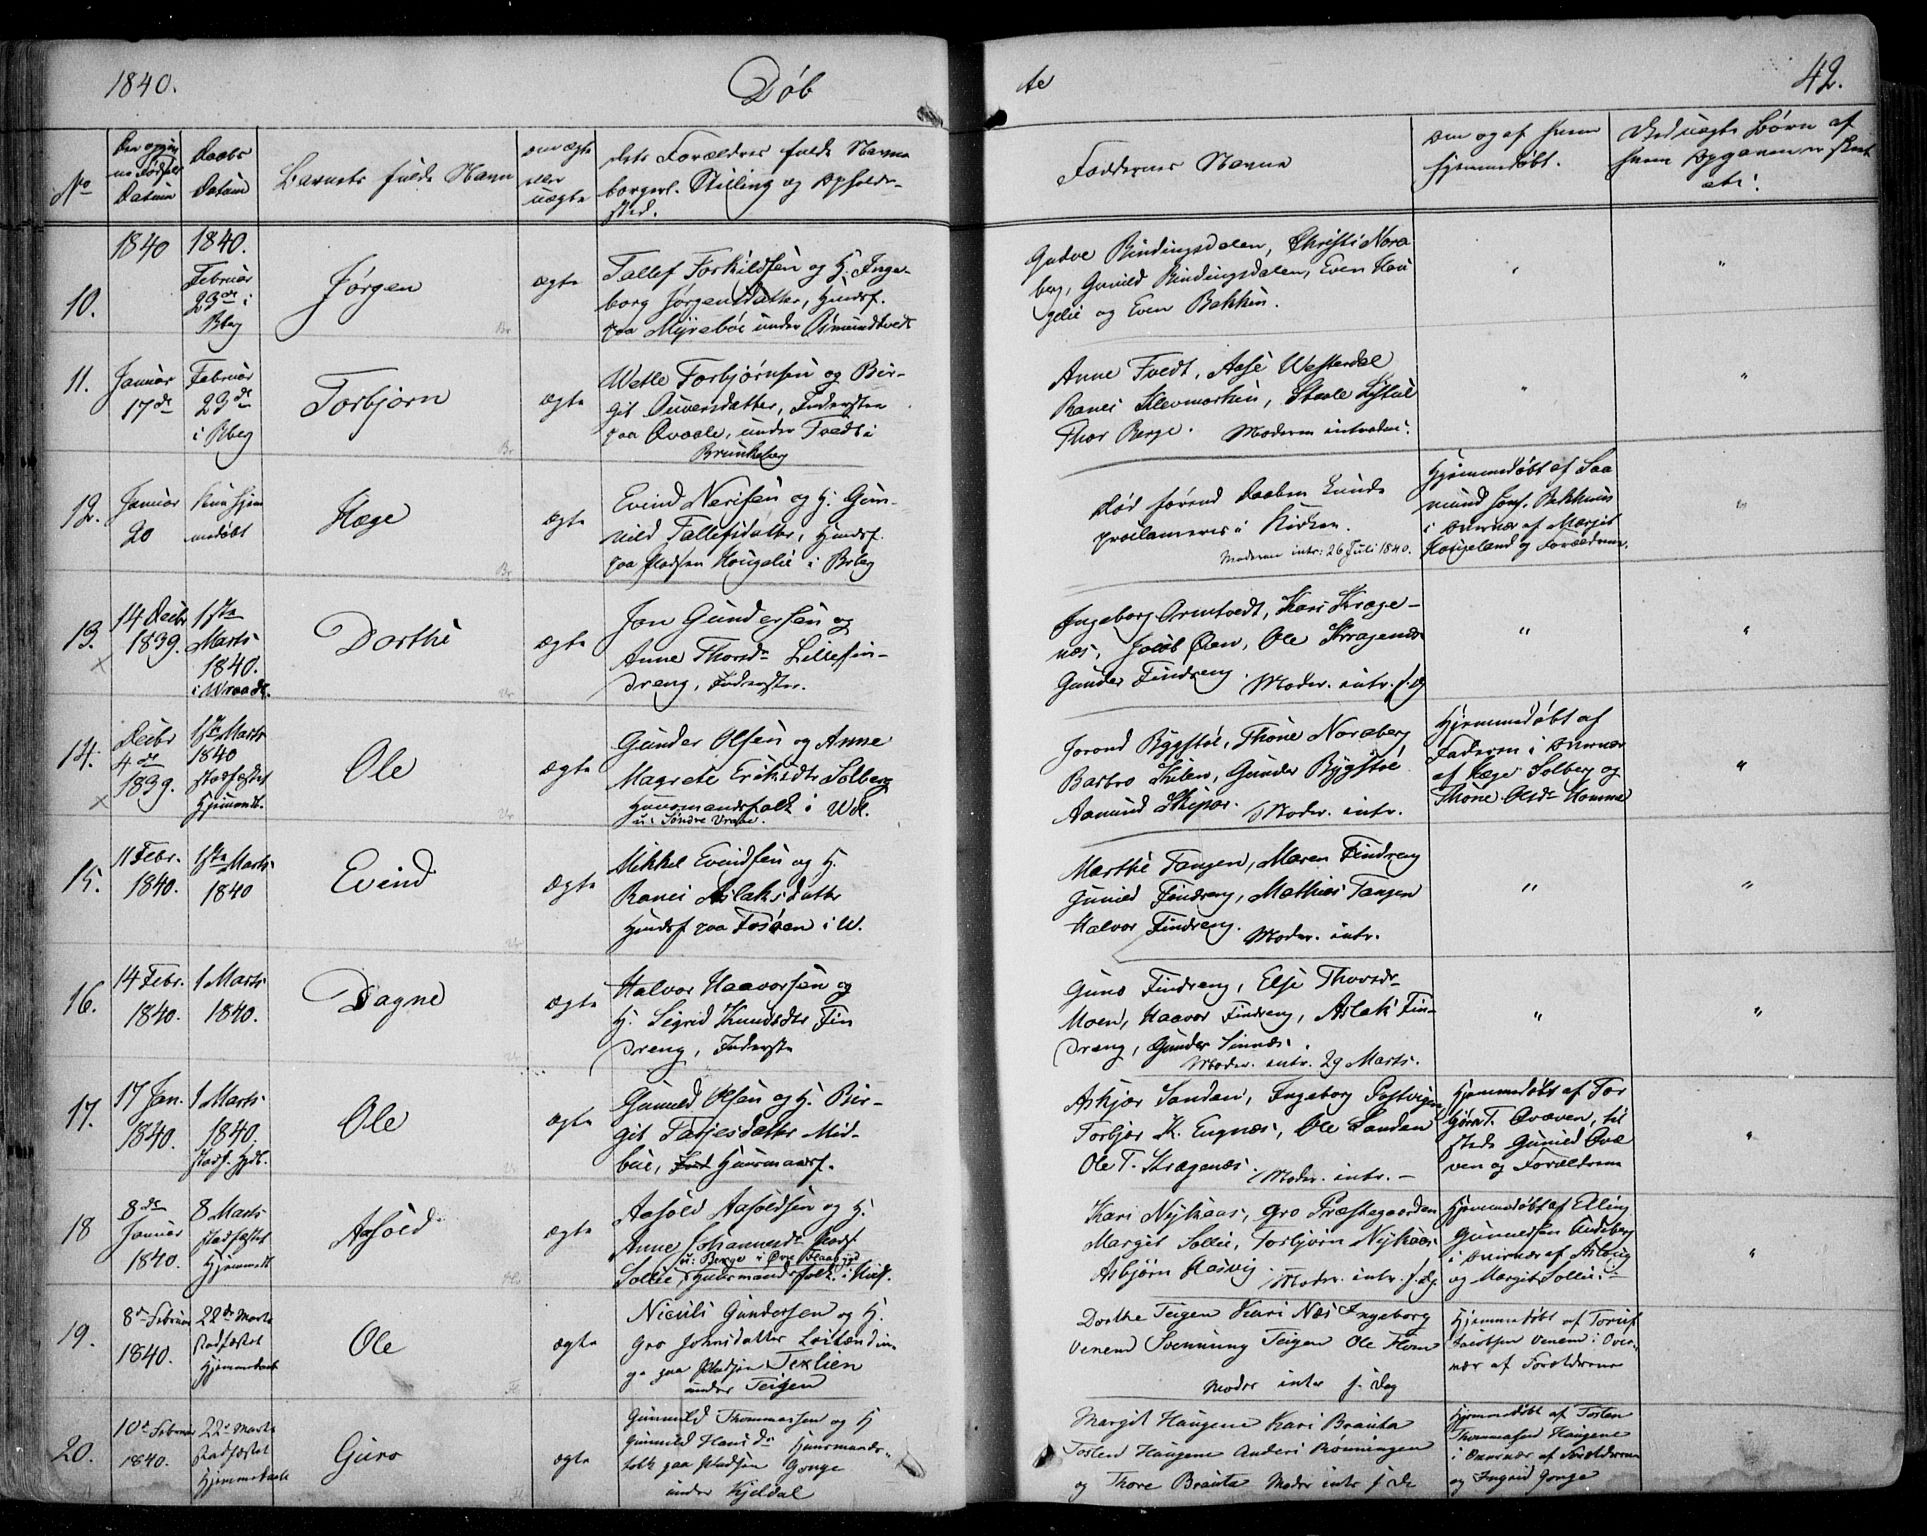 1840.
Døb
te
42.
No
Den opgiv
ne Fødsels
Datum
Daabs
Datum
Barnets fulde Navn
om ægte
eller
uægte
Dets Forældres fulde Navne
borgerl. Stilling og Opholds-
sted.
Faddernes Navne
Om og af hvem
hjemmedøbt.
Ved uægte Børn af
hvem Opgaven er skeet
etc.
10.
1840
1840.
Februar
23de i
Bberg
Jørgen
Br
ægte
Tallef Torkildsen og H. Inge-
borg Jørgensdatter, Huusf.
paa Myrebøe under Ømundtvedt
Gudve Bindingsdalen, Christi Nora
berg, Gunild Bindingsdalen, Even Hou
gelie og Even Bakken.
"
"
11.
Januar
17de
Februar
23de
i Bberg
Torbjørn
Br
ægte
Wetle Torbjørnsen og Bir-
git Ouversdatter, Inderster
paa Qvaale, under Tvedt i
Brunkeberg
Anne Tvedt, Aase Westerdal
Ranei Klevmarken, Staale
Thor Berge. Moderen introduc:
"
"
12.
Januar
20
kun hjem
medøbt
Hæge
Br
ægte
Evind Nerisen og H. Gun-
nild Tallefsdatter, Huusf.
paa Pladsen Hougelie i Bberg
død førend Daaben kunde
proclameres i Kirken.
Moderen intr: 26 Juli 1840.
Hjemmedøbt af Saa
mund Bakken
i Overvær af Margit
Hougeland og Forældrene.
"
13.
14 Decbr
1839.
1ste
Marts
1840.
i Wraadl.
Dorthe
Vr
ægte
Jon Gundersen og
Anne Thorsdr Lillefin-
dreng, Inderster.
Ingeborg Armtvedt, Kari Krage-
næs, Jacob Øien, Ole Kragenæs
Gunder Findreng. Moder. intr. s. D
"
"
14.
Decbr
4de
1839.
1ste Marts
1840
stadfæstet
Hjemmedb.
Ole
Vr
ægte
Gunder Olsen og Anne
Magrete Eriksdtr Solberg
Huusmandsfolk i Wdl.
u: Søndre Vraae.
Jorond Bygstøl, Thone Noraberg
Barbro Kilen, Gunder Bygstøl
Aamund Skipar. Moder. intr.
Hjemmedøbt af
Faderen i Overvær
af Hæge Solberg og
Thone Olsdr Homme
"
15.
11 Febr.
1840.
1ste Marts
1840
Evind
Vr
ægte
Mikkel Evindsen og H.
Ranei Aslaksdatter
Huusf paa Fosøen i W.
Marthe Tangen, Maren Findreng
Gunild Findreng, Mathias Tangen
Halvor Findreng. Moder. intr.
"
"
16.
14 Febr.
1840.
1 Marts
1840.
Dagne
Vr
ægte
Halvor Haavorsen og
H. Sigrid Knudsdtr Fin
dreng, Inderste
Guno Findreng, Else Thorsdr
Moen, Haavor Findreng, Aslak Fin-
dreng, Gunder Sinnæs.
Moder. intr. 29 Marts.
"
"
17.
17 Jan.
1840.
1 Marts
1840.
stadf. Hjdb.
Ole
Vr
ægte
Gunuld Olsen og H. Bir-
git Tarjesdatter Mid-
bøe, Huusmandsf.
Askjær Sandan, Ingeborg Postvigen
Torbjør K. Eugnæs, Ole Sandan
Ole T. Kragenæs. Moder. intr. -
Hjemmedøbt af Tor
bjørn T. Qvæven, til
stede Gunild Qvæ
ven og Forældrene
"
18
8de
Januar
1840.
8 Marts
stadfæstet
Hjemmedb
Asold
ægte
Aasold Aasoldsen og H.
Anne Johannesdr Plads
u: Berge i Øvre Flaabygd
Sollie Huusmandsfolk i Hvid.
Kari Nykaas, Gro Præstegaarden
Margit Sollie, Torbjørn Nykaas
Asbjørn Hasvig. Moder. intr. s. D.
Hjemmedøbt af Elling
Gunnulfsen Lindeberg
i Overvær af Asloug
og Margit Sollie.
"
19.
8de Februar
1840.
22de Marts
stadfæstet
Hjemmedaab
Ole
Fl
ægte
Niculs Gundersen og H.
Gro Johnsdatter Leilændin-
ge paa Pladsen Texlien
under Teigen
Dorthe Teigen Kari Næs Ingeborg
Venem Svenning Teigen Ole Flom
Moder intr s. Dag
Hjemmedøbt af Torjuf
Jacobsen Venem i Over-
vær af Forældrene
20.
10de Februar
1840.
22de Marts
stadfæstet
Hjemmedaab
Guro
ægte
Gunnuld Thommassen og H
Gunuld Hansdr Huusmands-
folk paa Pladsen Gonge
under Kjeldal
Margit Haugene Kari Brauta
Tosten Haugene Anders Rønningen
og Thore Brauta Moder intr s. Da
Hjemmedøbt af Tosten
Thommasen Haugene
i Overvær af Forældrene
og Ingrid Gonge